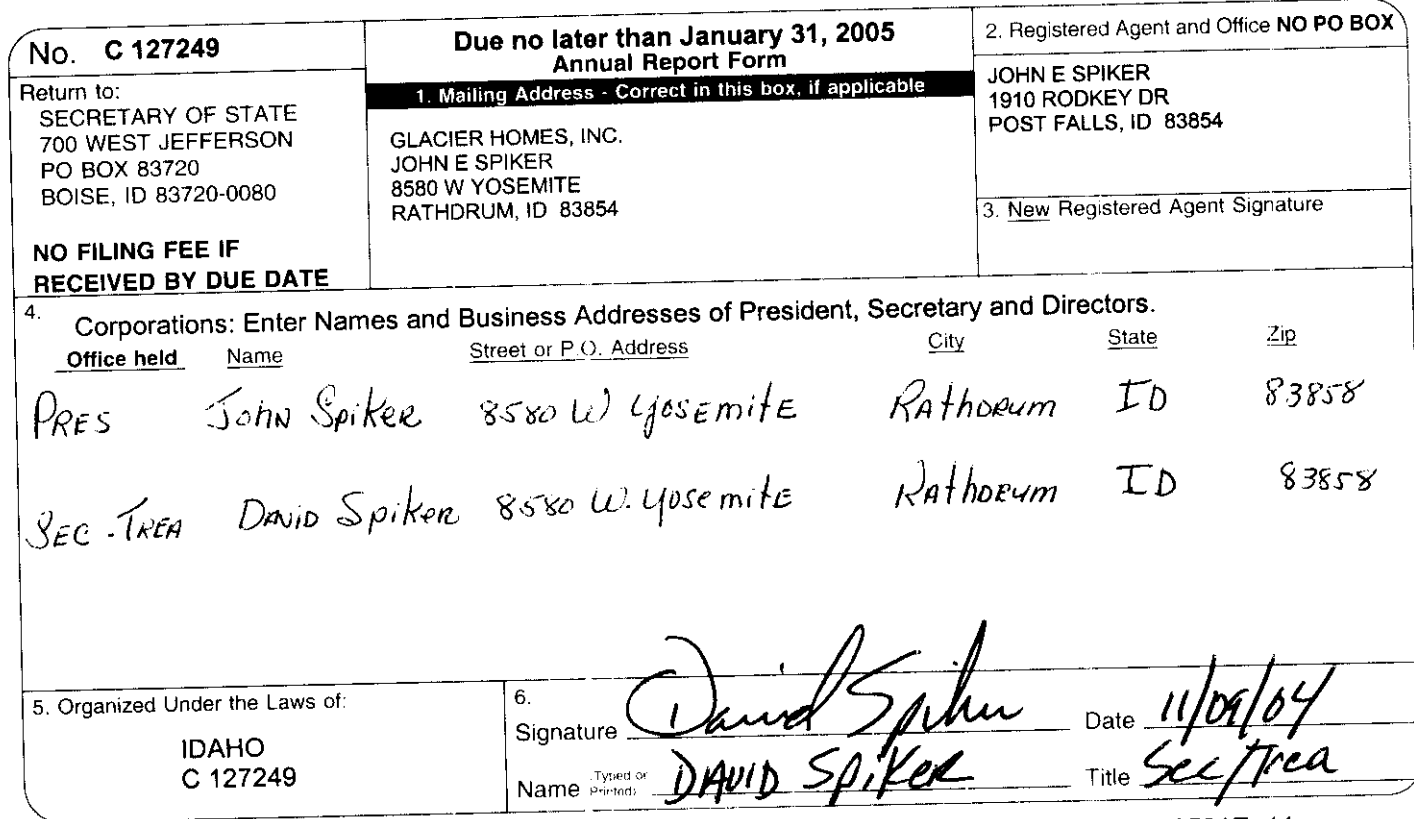 No. C 127249
Return to:
SECRETARY OF STATE
700 WEST JEFFERSON
PO BOX 83720
BOISE, ID 83720-0080
NO FILING FEE IF
RECEIVED BY DUE DATE
Due no later than January 31, 2005
Annual Report Form
1. Mailing Address - Correct in this box, if applicable
GLACIER HOMES, INC.
JOHN E SPIKER
8580 W YOSEMITE
RATHDRUM, ID 83854
2. Registered Agent and Office NO PO BOX
JOHN E SPIKER
1910 RODKEY DR
POST FALLS, ID 83854
3. New Registered Agent Signature
4. Corporations: Enter Names and Business Addresses of President, Secretary and Directors.
Office held Name Street or P.O. Address City State Zip
PRES John Spiker 8580 W Yosemite Rathdrum ID 83858
SEC - TREA David Spiker 8580 W. Yosemite Rathdrum ID 83858
5. Organized Under the Laws of:
IDAHO
C 127249
6.
Signature David Spiker Date 11/09/04
Name (Typed or Printed) DAVID SPIKER Title Sec/Trea